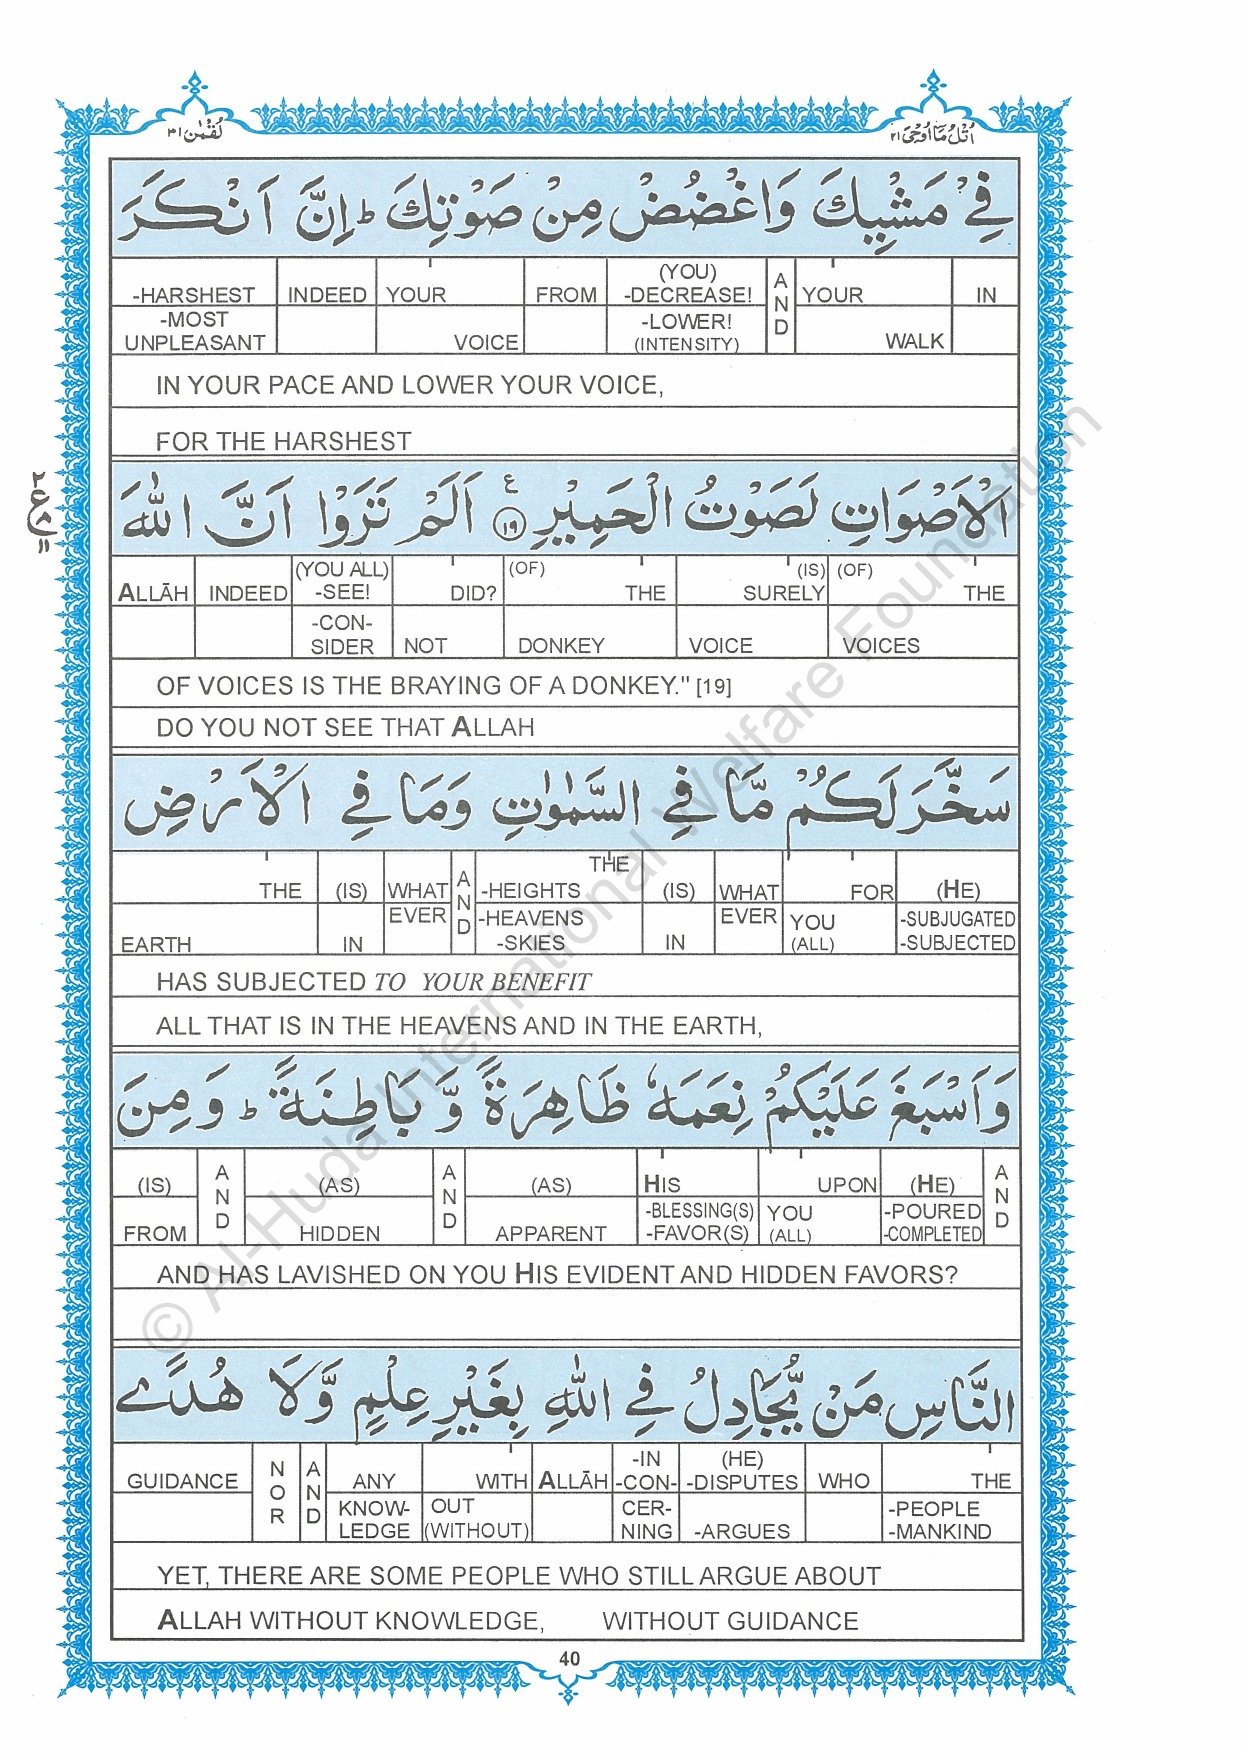 لُقْمٰن ٣١
اُتْلُ مَا اُوْحِيَ ٢١
فِيْ مَشْيِكَ وَاغْضُضْ مِنْ صَوْتِكَ ؕ اِنَّ اَنْكَرَ
-HARSHEST INDEED YOUR FROM (YOU) -DECREASE! AND YOUR IN
-MOST UNPLEASANT VOICE -LOWER! (INTENSITY) WALK
IN YOUR PACE AND LOWER YOUR VOICE,
FOR THE HARSHEST
الْاَصْوَاتِ لَصَوْتُ الْحَمِيْرِ ۧ ١٩ اَلَمْ تَرَوْا اَنَّ اللهَ
ALLĀH INDEED (YOU ALL) -SEE! DID? (OF) THE SURELY (IS) (OF) THE
-CON-SIDER NOT DONKEY VOICE VOICES
OF VOICES IS THE BRAYING OF A DONKEY." [19]
DO YOU NOT SEE THAT ALLAH
سَخَّرَ لَكُمْ مَّا فِي السَّمٰوٰتِ وَمَا فِي الْاَرْضِ
THE (IS) WHAT AND THE -HEIGHTS (IS) WHAT FOR (HE)
EARTH IN EVER -HEAVENS -SKIES IN EVER YOU (ALL) -SUBJUGATED -SUBJECTED
HAS SUBJECTED TO YOUR BENEFIT
ALL THAT IS IN THE HEAVENS AND IN THE EARTH,
وَاَسْبَغَ عَلَيْكُمْ نِعَمَهٗ ظَاهِرَةً وَّ بَاطِنَةً ؕ وَ مِنَ
(IS) AND (AS) AND (AS) HIS UPON (HE) AND
FROM HIDDEN APPARENT -BLESSING(S) -FAVOR(S) YOU (ALL) -POURED -COMPLETED
AND HAS LAVISHED ON YOU HIS EVIDENT AND HIDDEN FAVORS?
النَّاسِ مَنْ يُّجَادِلُ فِي اللهِ بِغَيْرِ عِلْمٍ وَّلَا هُدًى
GUIDANCE NOR AND ANY WITH ALLĀH -IN -CON- (HE) -DISPUTES WHO THE
KNOW-LEDGE OUT (WITHOUT) CER-NING -ARGUES -PEOPLE -MANKIND
YET, THERE ARE SOME PEOPLE WHO STILL ARGUE ABOUT
ALLAH WITHOUT KNOWLEDGE, WITHOUT GUIDANCE
40
© Al-Huda International Welfare Foundation